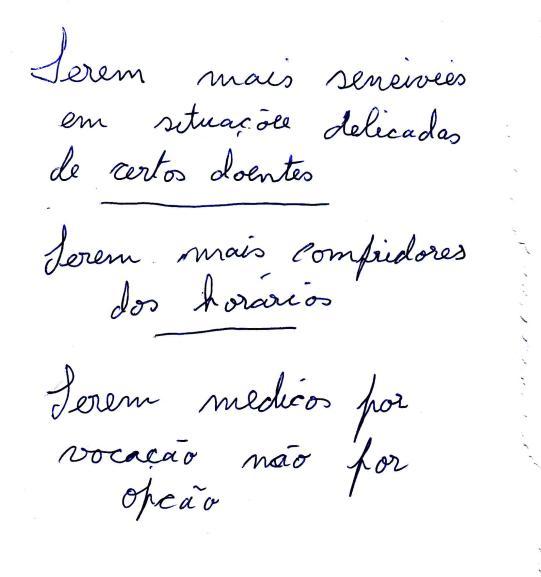 Serem mais senciveis
em situaçõe delicadas
de certos doentes
Serem mais compridores
dos horários
Serem medicos por
vocação não por
opcão